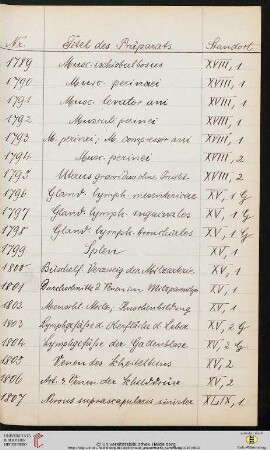 Nr. Titel des Präparats Standort
1789 Musc. ischiobulbosus XVIII, 1
1790 Musc. perinaei XVIII, 1
1791 Musc. levator ani XVIII, 1
1792 Muscul. perinei XVIII, 1
1793 M. perinei; M. compressor ani XVIII, 1
1794 Musc. perinei XVIII, 2
1795 Uterus gravidus ohne XVIII, 2
1796 Gland. lymph. mesentericae XV, 1 G
1797 Gland. lymph. inguinales XV, 1 G
1798 Gland. lymph. bronchiales XV, 1 G
1799 Splen XV, 1
1800 Verzweig. der Milzarterie XV, 1
1801 Durchschnitte d. XV, 1
1802 Menschl. Milz, Knochenbildung XV, 1
1803 Lymphgefäße d. Oberfläche d. Leber XV, 2 G
1804 Lymphgefäße der Gallenblase XV, 2 G
1805 Venen des XV, 2
1806 Art. & Venen der XV, 2
1807 Nervus suprascapularis sinister XLIX, 1
UNIVERSITÄTS-
BIBLIOTHEK
HEIDELBERG
© Universitätsbibliothek Heidelberg